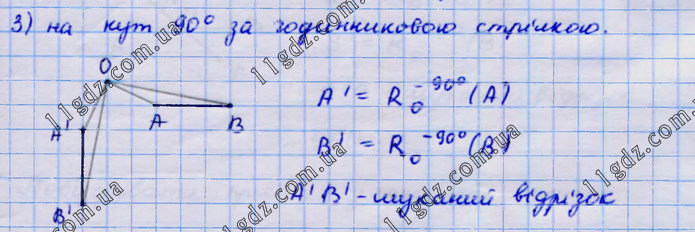 3) на кут 90° за годинниковою стрілкою.
O
A' = R_O^{-90°}(A)
A
B
A'
B' = R_O^{-90°}(B)
A'B' - шуканий відрізок
B'
11gdz.com.ua
11gdz.com.ua
11gdz.com.ua
11gdz.com.ua
11gdz.com.ua
11gdz.com.ua